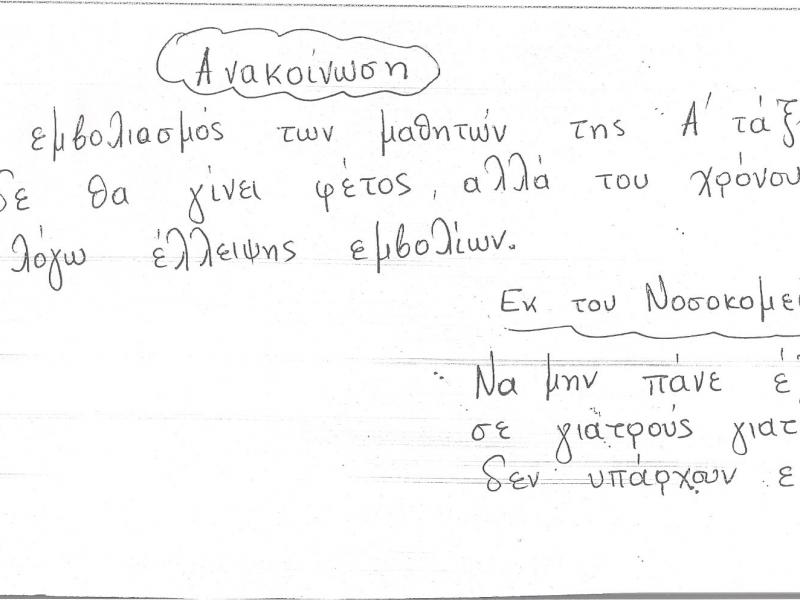 Ανακοίνωση
εμβολιασμός των μαθητών της Α' τάξ
δε θα γίνει φέτος, αλλά του χρόνου
λόγω έλλειψης εμβολίων.
Εκ του Νοσοκομεί
Να μην πάνε έ
σε γιατρούς γιατ
δεν υπάρχουν ε